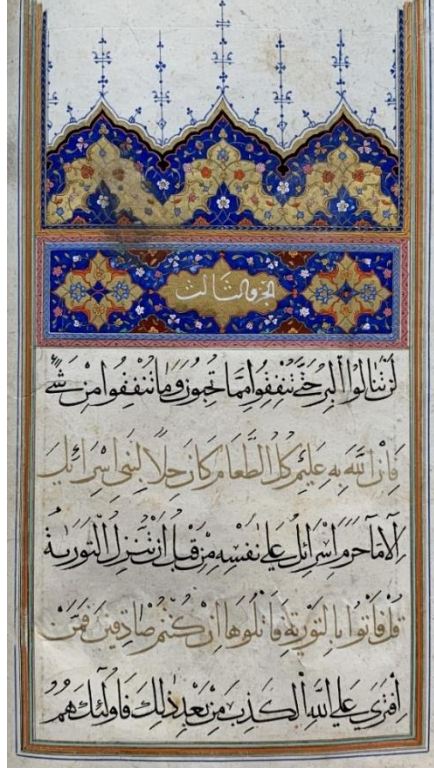 الجزو الثالث
لَنْ تَنَالُوا الْبِرَّ حَتَّىٰ تُنْفِقُوا مِمَّا تُحِبُّونَ وَمَا تُنْفِقُوا مِنْ شَيْءٍ
فَاِنَّ اللَّهَ بِهِ عَلِيمٌ كُلُّ الطَّعَامِ كَانَ حِلًّا لِبَنِي اِسْرَائِيلَ
اِلَّا مَا حَرَّمَ اِسْرَائِلُ عَلَىٰ نَفْسِهِ مِنْ قَبْلِ اَنْ تُنَزَّلَ التَّوْرَىٰةُ
قُلْ فَأْتُوا بِالتَّوْرَىٰةِ فَاتْلُوهَا اِنْ كُنْتُمْ صَادِقِينَ فَمَنِ
افْتَرَىٰ عَلَى اللَّهِ الْكَذِبَ مِنْ بَعْدِ ذَٰلِكَ فَاُولَٰئِكَ هُمُ